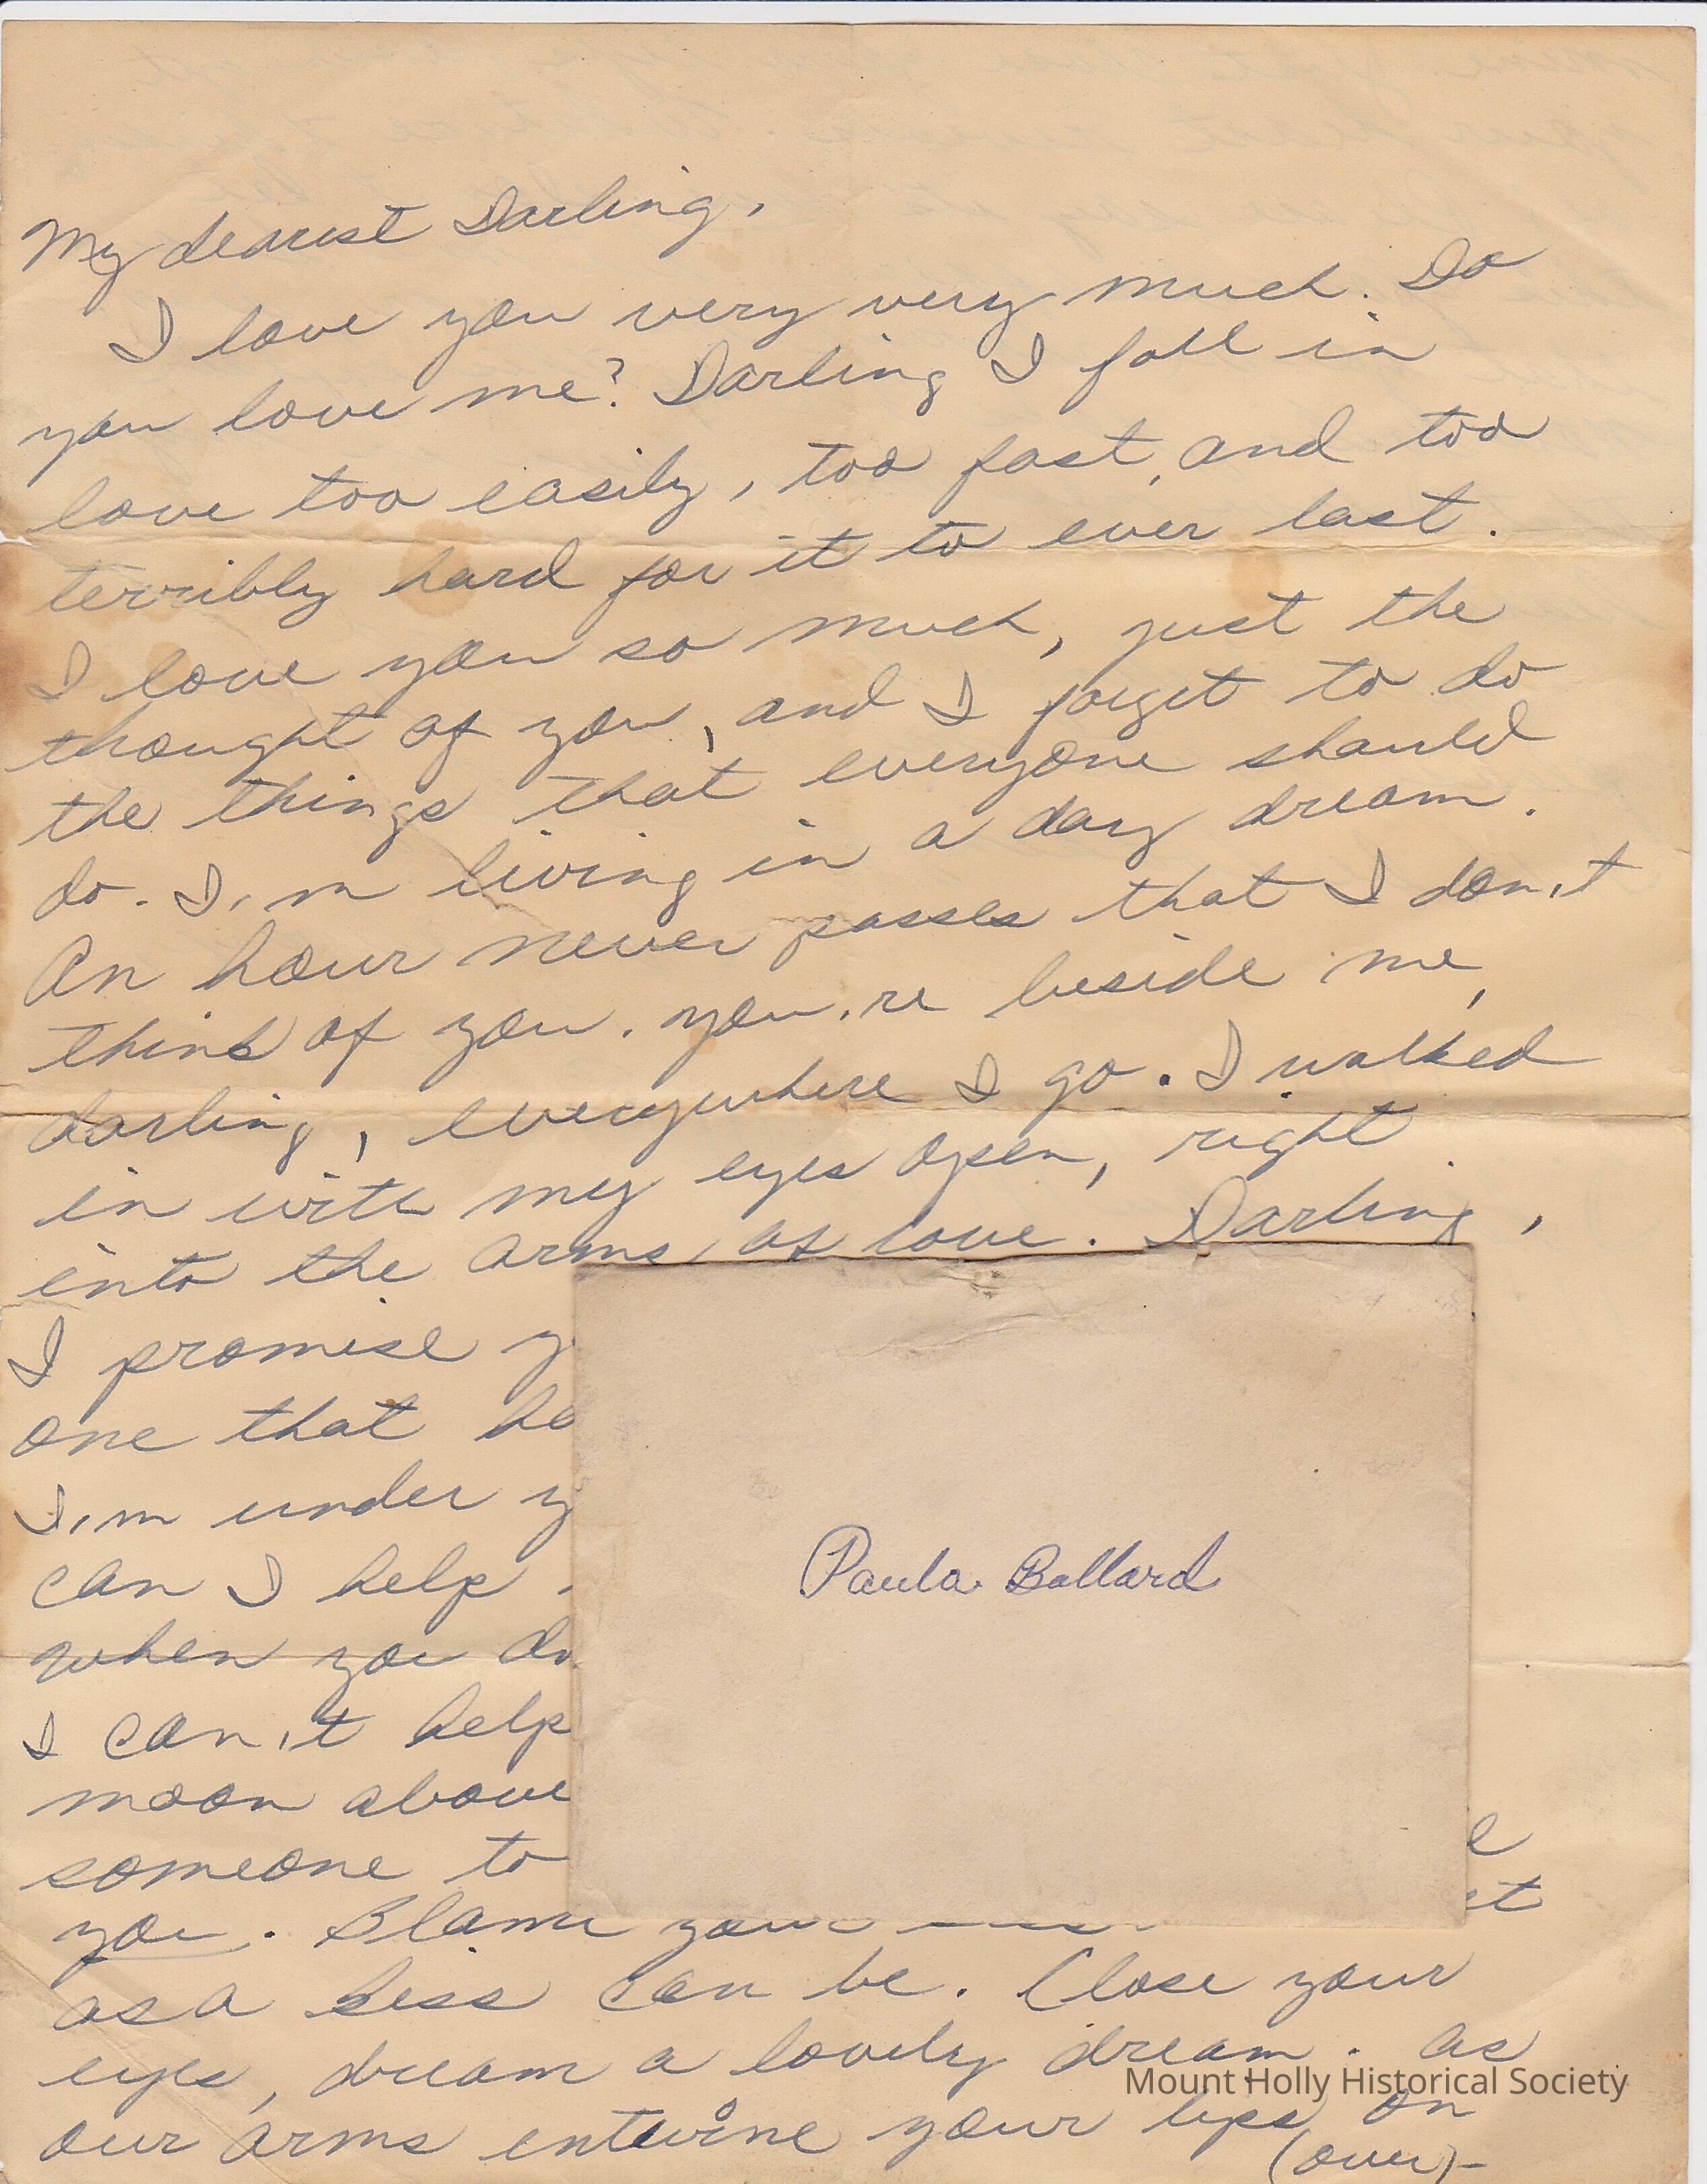 My dearest Darling,
I love you very very much. Do
you love me? Darling I fall in
love too easily, too fast, and too
terribly hard for it to ever last.
I love you so much, just the
thought of you, and I forget to do
the things that everyone should
do. I,m living in a day dream.
An hour never passes that I don,t
think of you. you,re beside me,
darling, everywhere I go. I walked
in with my eyes open, right
into the arms of love. Darling,
I promise
one that
I,m under
can I help
when you
I can,t help
moon above
someone to
you. Blame
as a kiss can be. Close your
eyes, dream a lovely dream. as
our arms entwine your lips on
(over)-
Paula Ballard
Mount Holly Historical Society